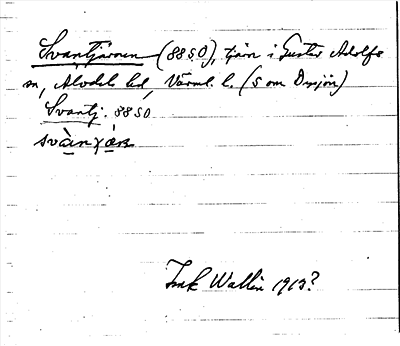 Svantjärnen (8850), tjärn i Gustav Adolfs
sn, Älvdals hd, Värml. l. (S om Deysjön)
Svantj. 8850
Ink Wallin 1913?